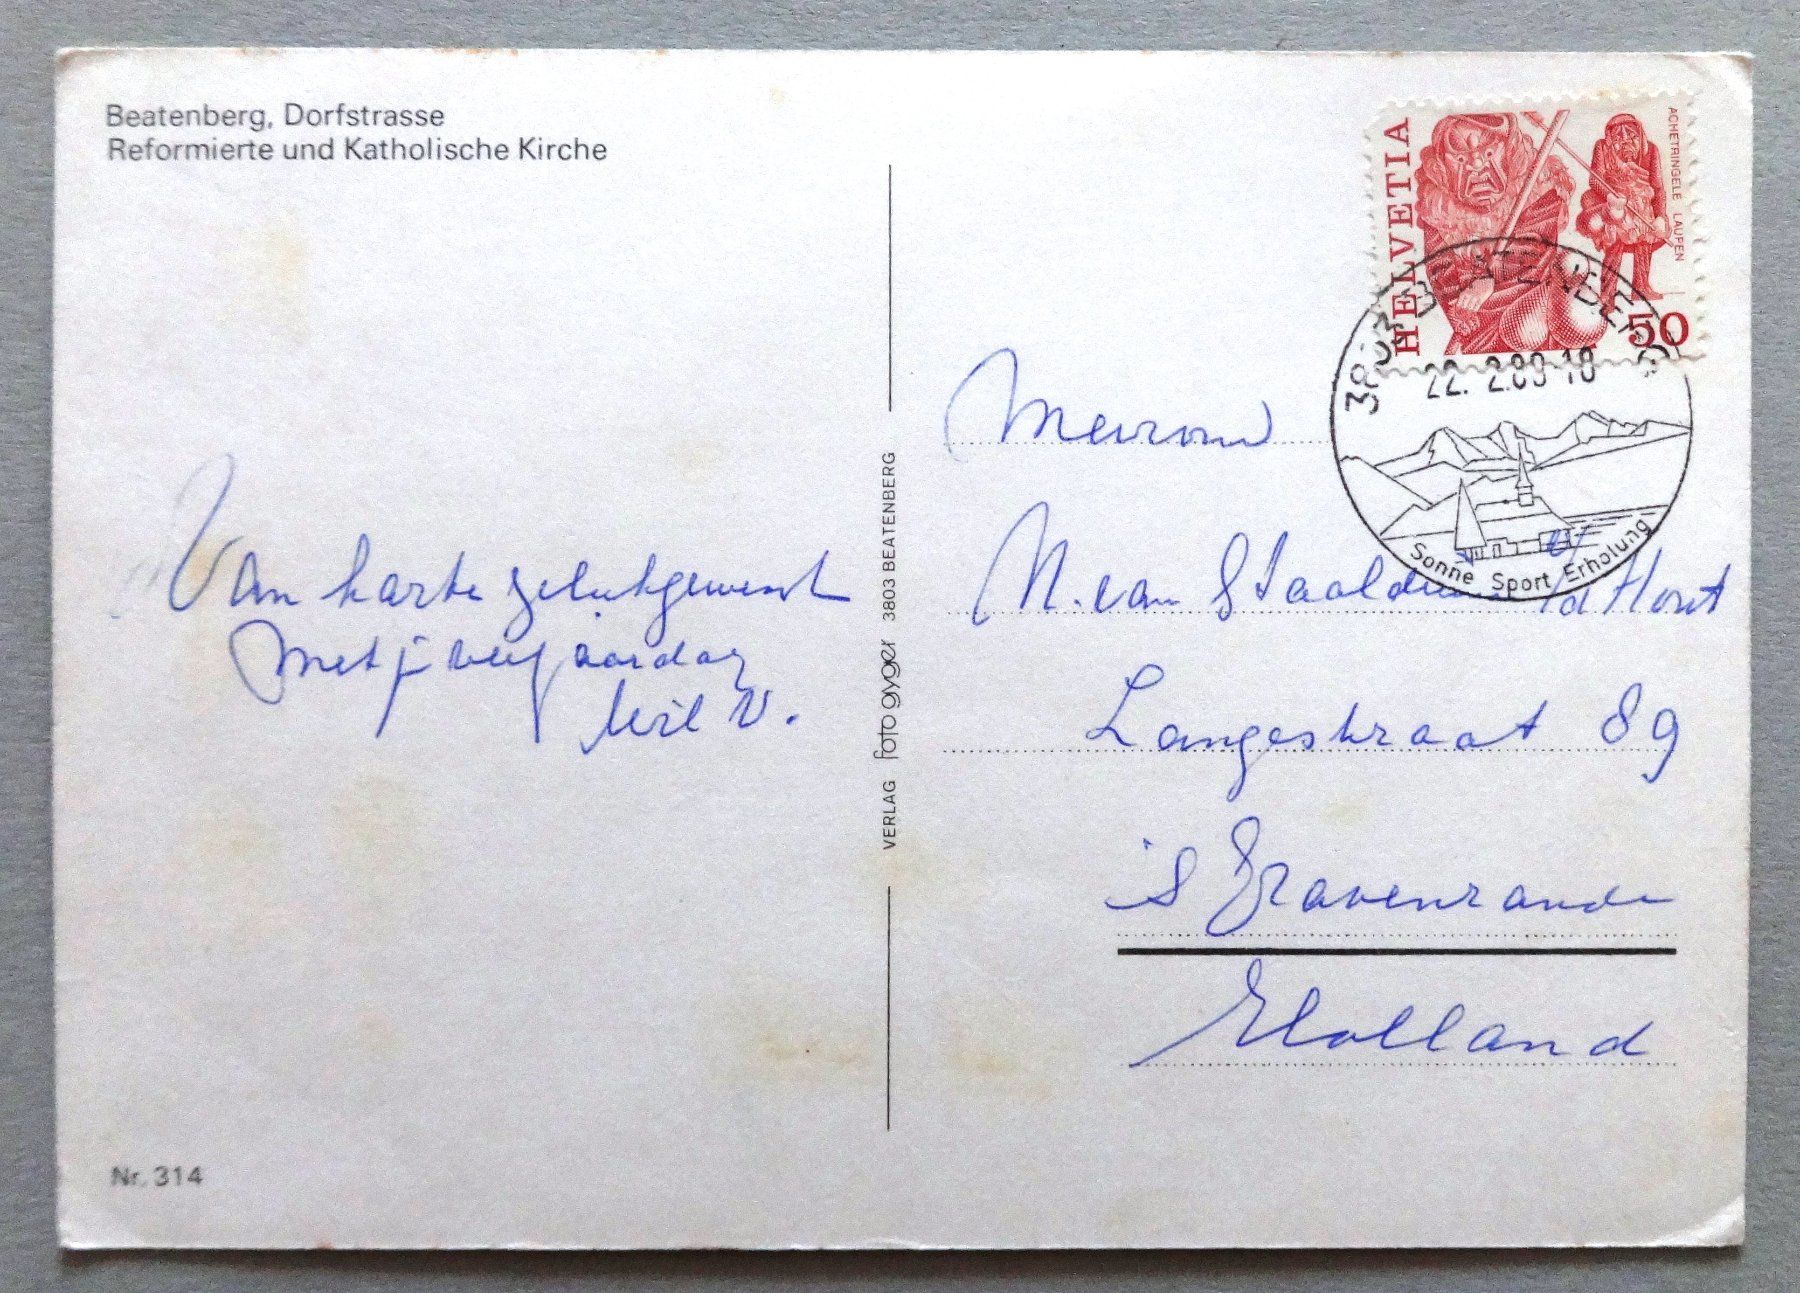 Beatenberg, Dorfstrasse
Reformierte und Katholische Kirche
Van harte gelukgewenst
met j verjaardag
Wil V.
Nr. 314
VERLAG foto gyger 3803 BEATENBERG
HELVETIA
ACHETRINGELE LAUPEN
50
3803 BEATENBERG
22. 2.89-18
Sonne Sport Erholung
Mevrouw
N. van Staalduinen v/d Horst
Langestraat 89
's Gravenzande
Holland